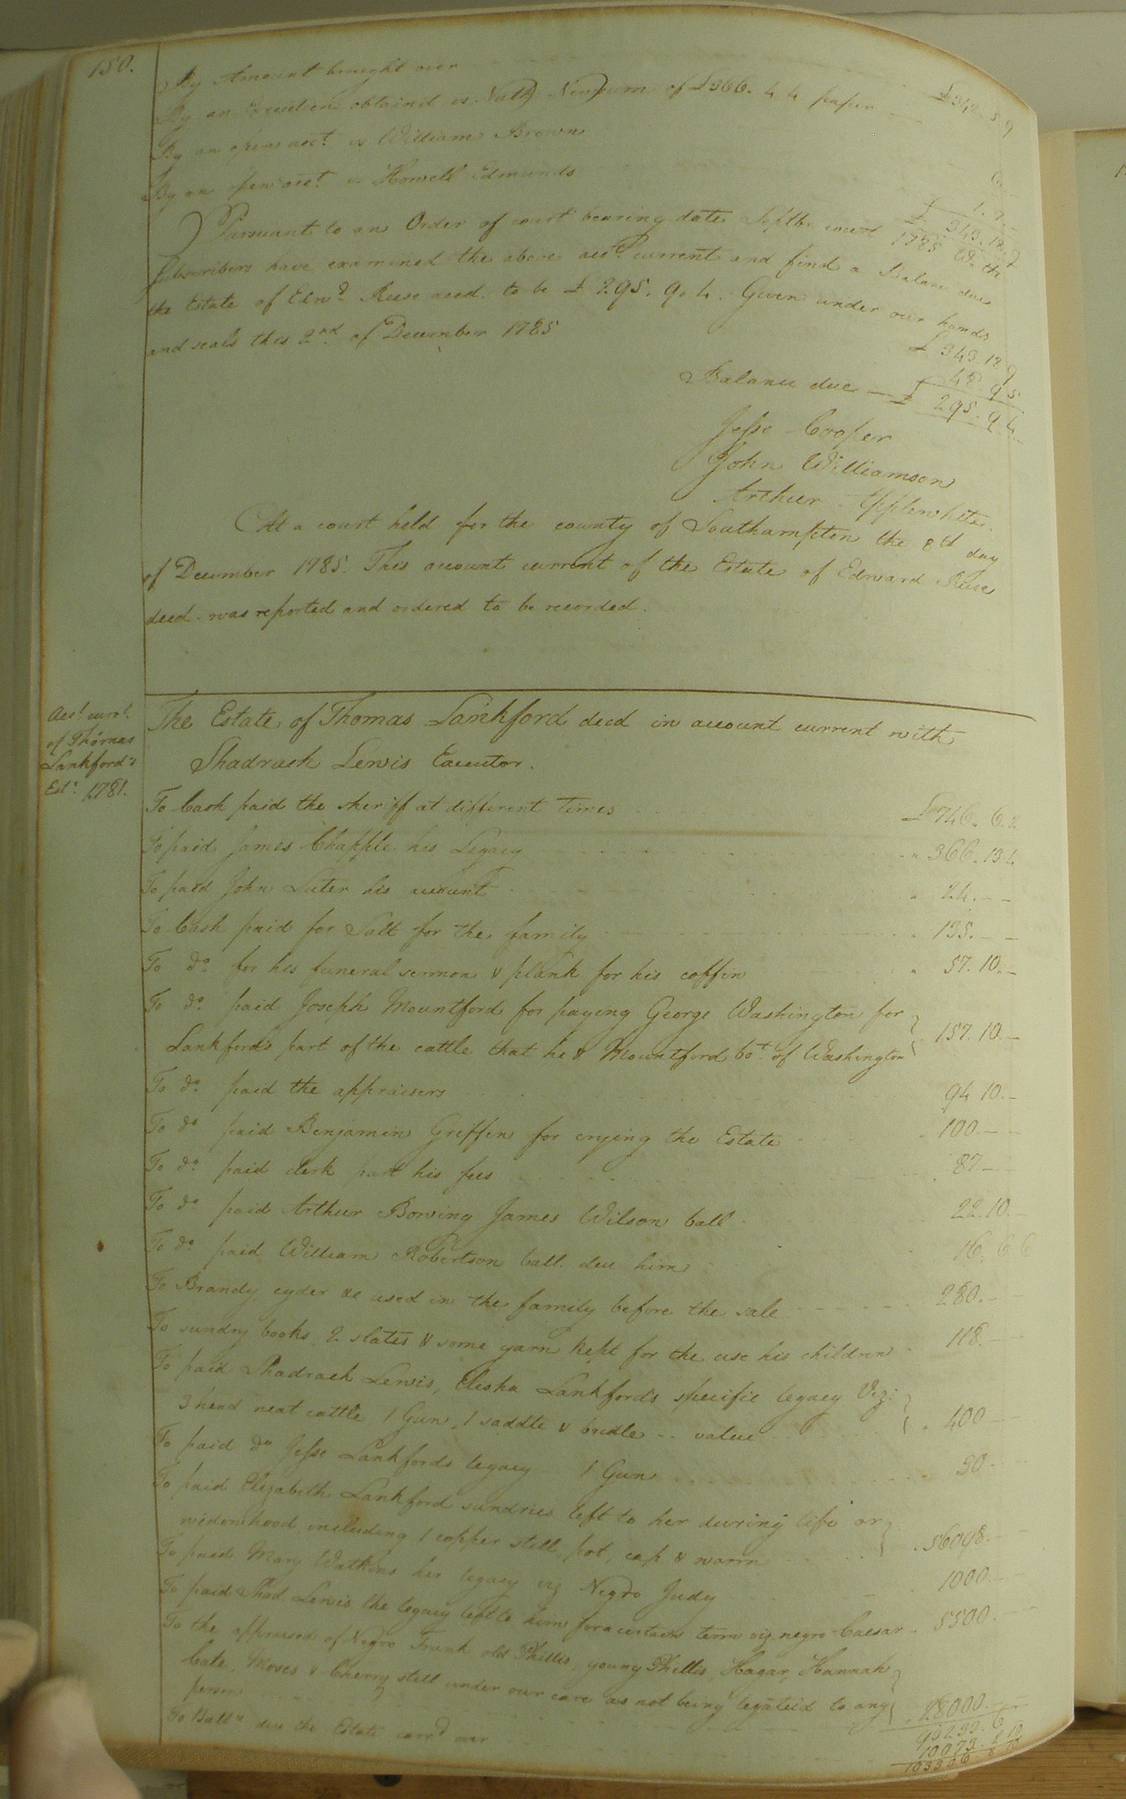 150.
By Amount brought over £342. 5. 9
By an Execution obtaind vs Nathl Newsum of £366. 4. 4 paper
By an open acct vs William Brown
By an open acct vs Howell Edmunds 1. 7. -
£ 343. 12. 9
Pursuant to an Order of court bearing date Septbr court 1785 We the
subscribers have examined the above acct current and find a Balance due
the Estate of Edwd Reese decd. to be £ 295. 9. 4. Given under our hands
and seals this 2nd of December 1785
£ 343. 12. 9
48. 9 5
Balance due — £ 295. 9. 4.
Jesse Cooper
John Williamson
Arthur Applewhite.
At a court held for the county of Southampton the 8th day
of December 1785. This account current of the Estate of Edward Reese
decd. was reported and ordered to be recorded.
Acct. currt.
of Thomas
Lankford's
Est. 1781.
The Estate of Thomas Lankford decd in account current with
Shadrach Lewis Executor.
To Cash paid the sheriff at different times 746. 6.
To paid James Chapple his Legacy " 366. 13.
To paid John Luter his account " 24. – –
To Cash paid for Salt for the family " 135. – –
To do. for his funeral sermon & plank for his coffin " 57. 10. –
To do. paid Joseph Mountford for paying George Washington for
Lankfords part of the cattle that he & Mountford bot. of Washington 157. 10. –
To do. paid the appraisers 94 10. –
To do paid Benjamin Griffin for crying the Estate 100. – –
To do. paid clerk part his fees 87 – –
To do paid Arthur Bowing James Wilson ball 22. 10. –
To do paid William Robertson ball. due him 16. 6 6
To Brandy cyder &c used in the family before the sale 280. – –
To sundry books, 2 slates & some yarn kept for the use his children 118. – –
To paid Shadrach Lewis, Elisha Lankfords specific legacy Viz:
3 head neat cattle 1 Gun, 1 saddle & bridle .. value " 400 – –
To paid do Jesse Lankfords legacy 1 Gun 30 – –
To paid Elizabeth Lankford sundries left to her during life or
widowhood including 1 copper still, pot, cap & worm 56098. – –
To paid Mary Watkins her legacy viz Negro Judy 1000. – –
To paid Shad. Lewis the legacy left to him for a certain term viz negro Caesar 5500. – –
To the appraised of Negro Frank old Phillis, young Phillis, Hagar, Hannah
Cate, Moses & Cherry still under our care as not being legateid to any
person 28000. – –
93233. 6
To Balle. due the Estate carrd over 10073. 2 10
103306 8 10